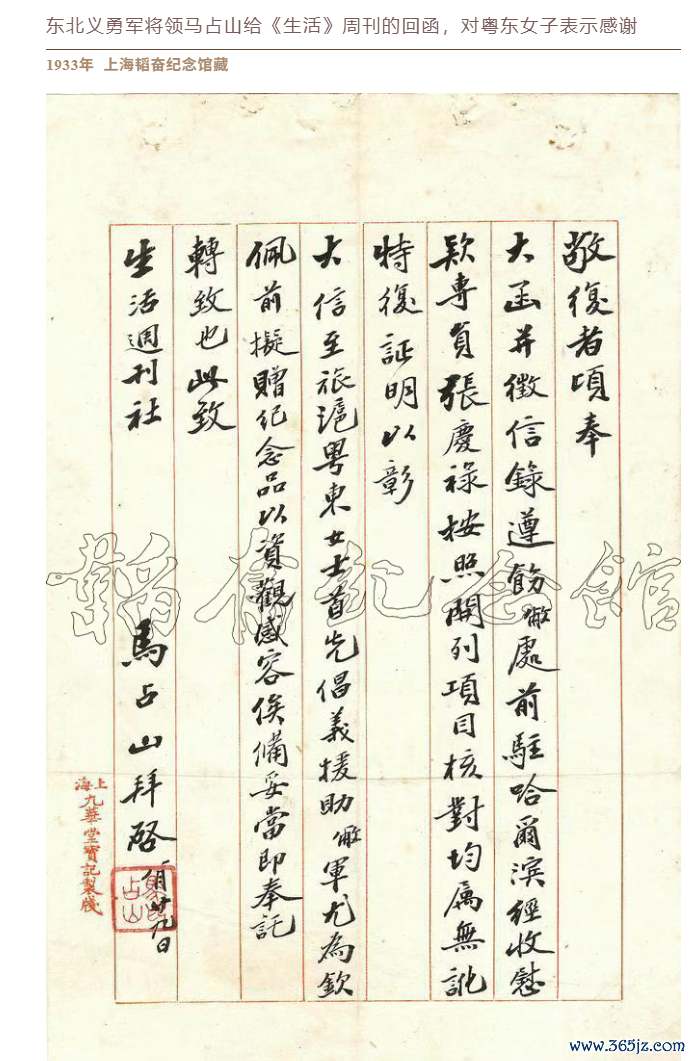 东北义勇军将领马占山给《生活》周刊的回函，对粤东女子表示感谢
1933年 上海韬奋纪念馆藏
敬復者頃奉
大函并徵信錄遵飭敝處前駐哈爾濱經收慰
款專員張慶祿按照開列項目核對均屬無訛
特復証明以彰
大信至旅滬粤東女士首先倡義援助敝軍尤為欽
佩前擬贈紀念品以資觀感容俟備妥當即奉託
轉致也此致
生活週刊社
馬占山拜啓 廿九日
占山
上海九華堂寶記製牋
韜奮記念館
www.365jz.com